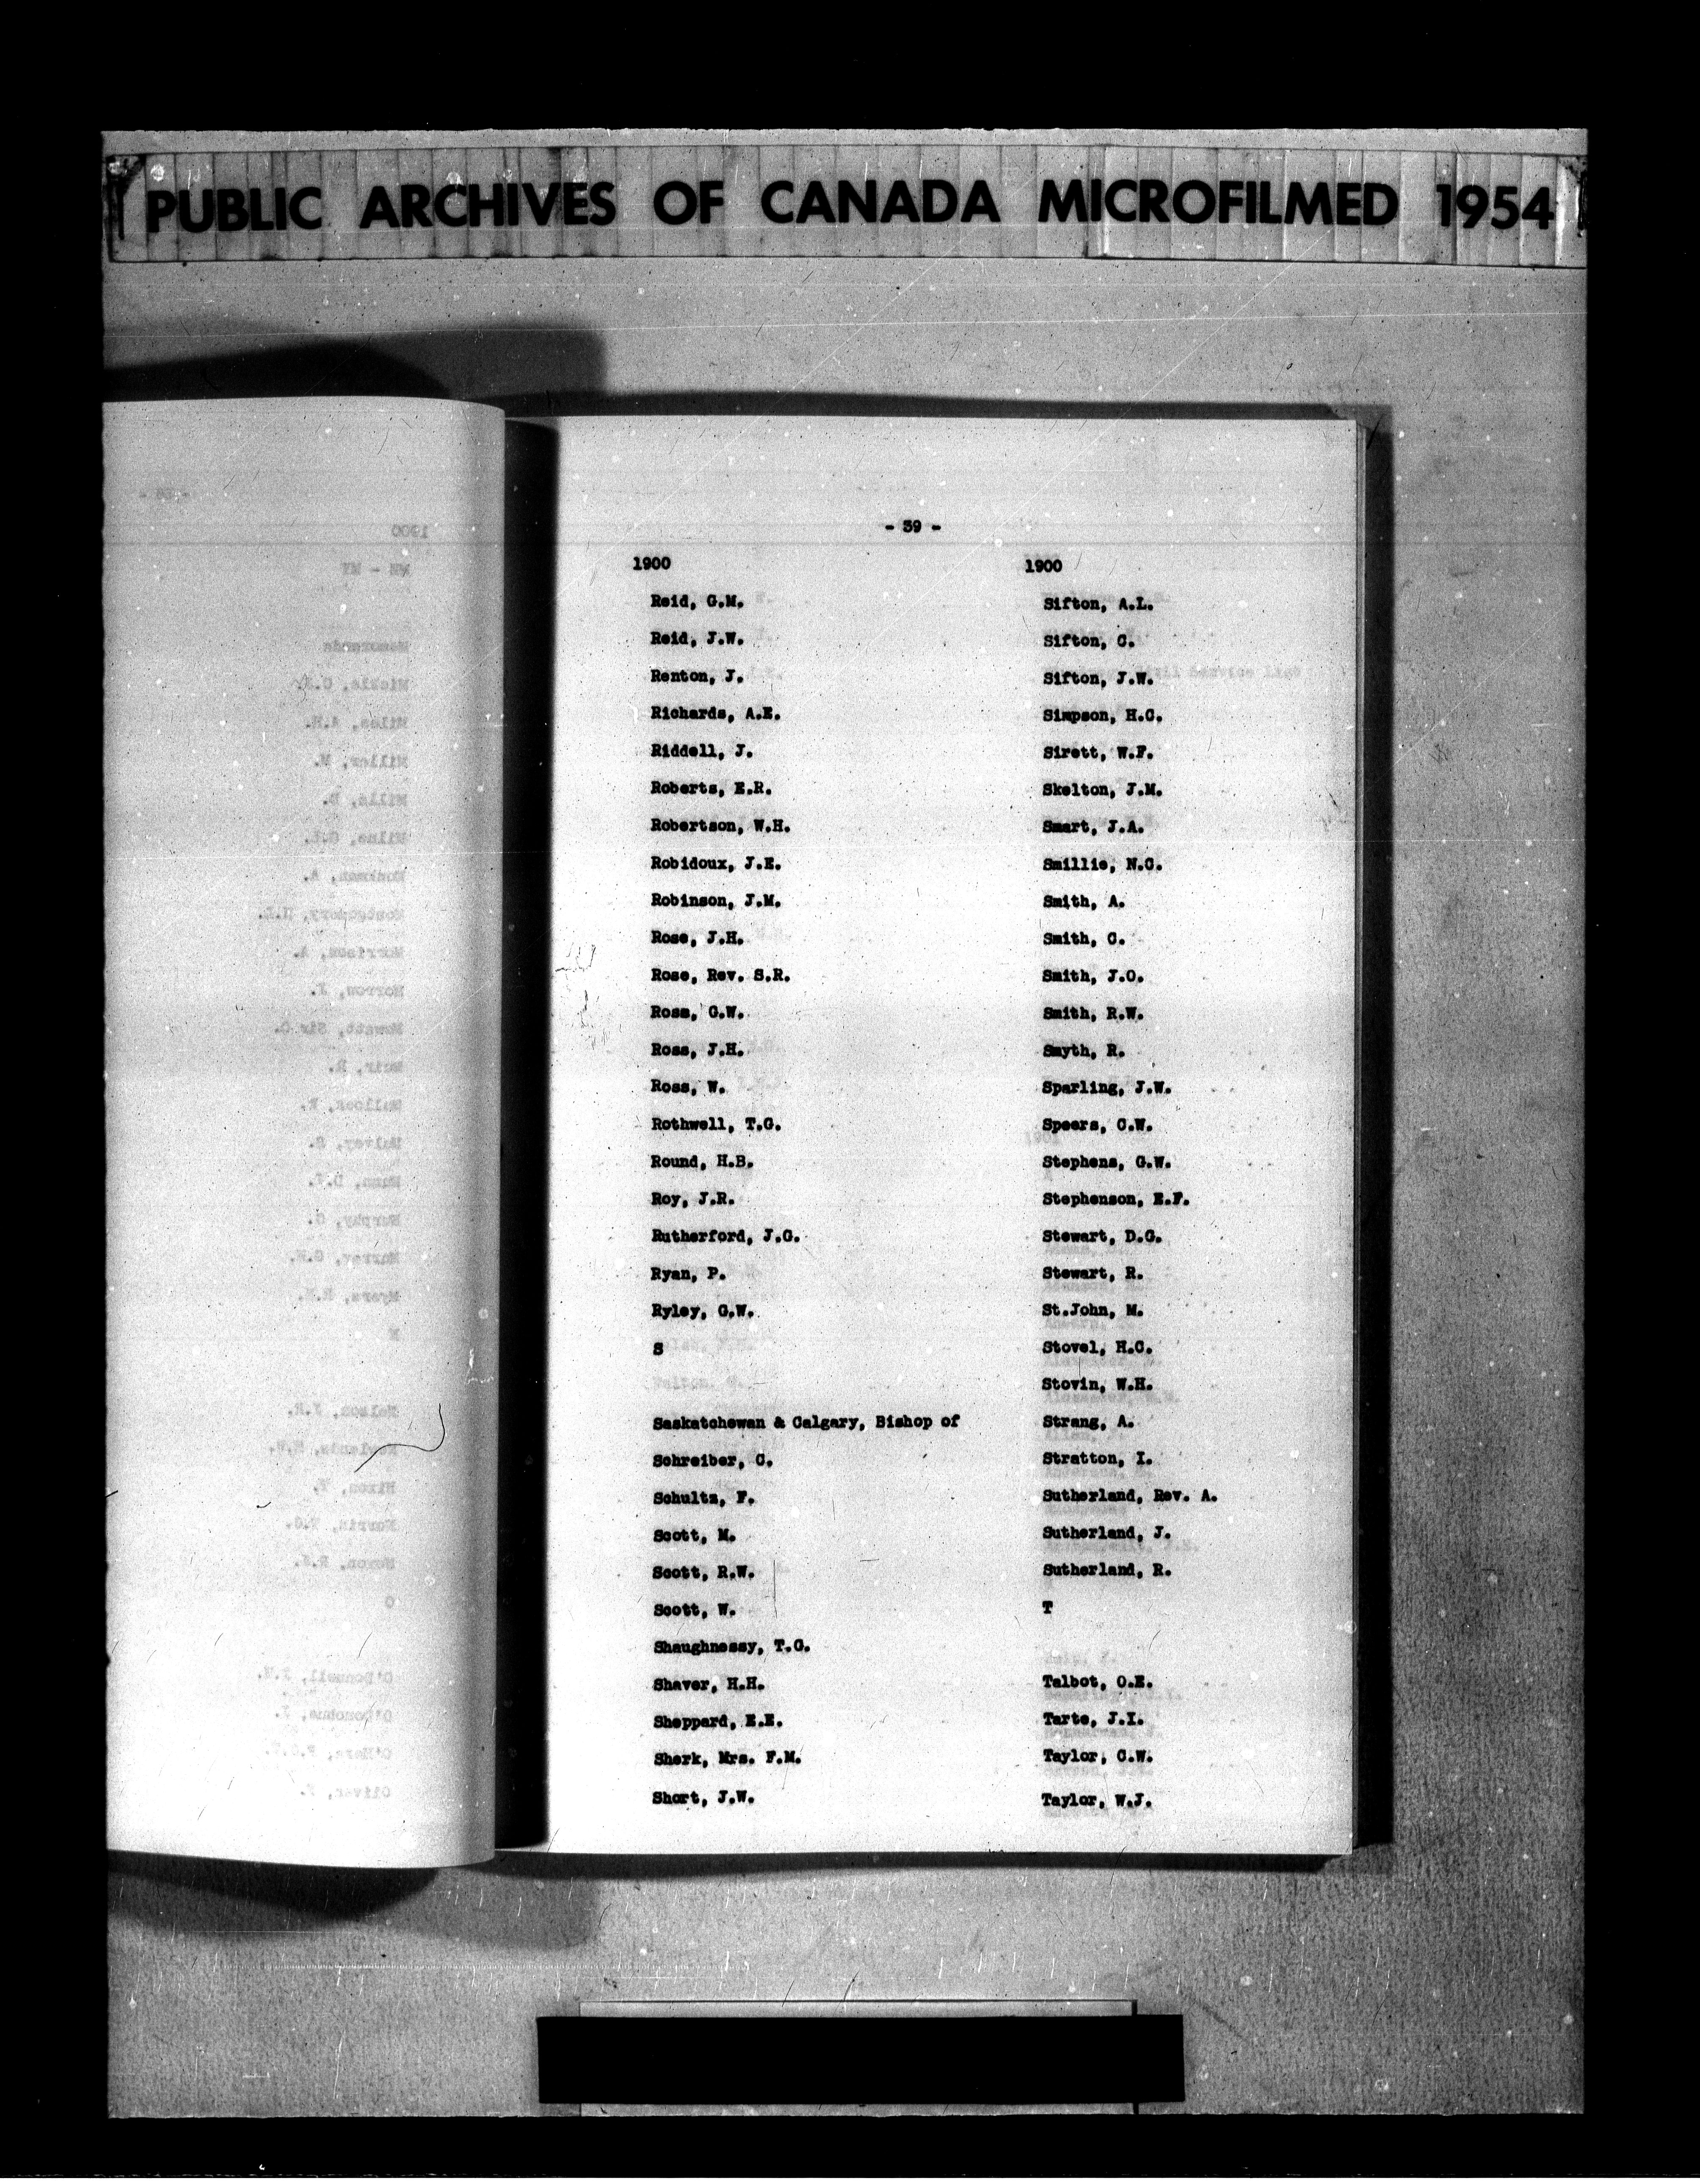 PUBLIC ARCHIVES OF CANADA MICROFILMED 1954
- 39 -
1900
Reid, G.M.
Reid, J.W.
Renton, J.
Richards, A.E.
Riddell, J.
Roberts, E.R.
Robertson, W.H.
Robidoux, J.E.
Robinson, J.M.
Rose, J.H.
Rose, Rev. S.R.
Ross, G.W.
Ross, J.H.
Ross, W.
Rothwell, T.G.
Round, H.B.
Roy, J.R.
Rutherford, J.G.
Ryan, P.
Ryley, G.W.
S
Saskatchewan & Calgary, Bishop of
Schreiber, C.
Schultz, F.
Scott, M.
Scott, R.W.
Scott, W.
Shaughnessy, T.G.
Shaver, H.H.
Sheppard, E.E.
Sherk, Mrs. F.M.
Short, J.W.
1900
Sifton, A.L.
Sifton, C.
Sifton, J.W.
Simpson, H.C.
Sirett, W.F.
Skelton, J.M.
Smart, J.A.
Smillie, N.C.
Smith, A.
Smith, C.
Smith, J.O.
Smith, R.W.
Smyth, R.
Sparling, J.W.
Speers, C.W.
Stephens, G.W.
Stephenson, E.F.
Stewart, D.G.
Stewart, R.
St.John, M.
Stovel, H.C.
Stovin, W.H.
Strang, A.
Stratton, I.
Sutherland, Rev. A.
Sutherland, J.
Sutherland, R.
T
Talbot, O.E.
Tarte, J.I.
Taylor, C.W.
Taylor, W.J.